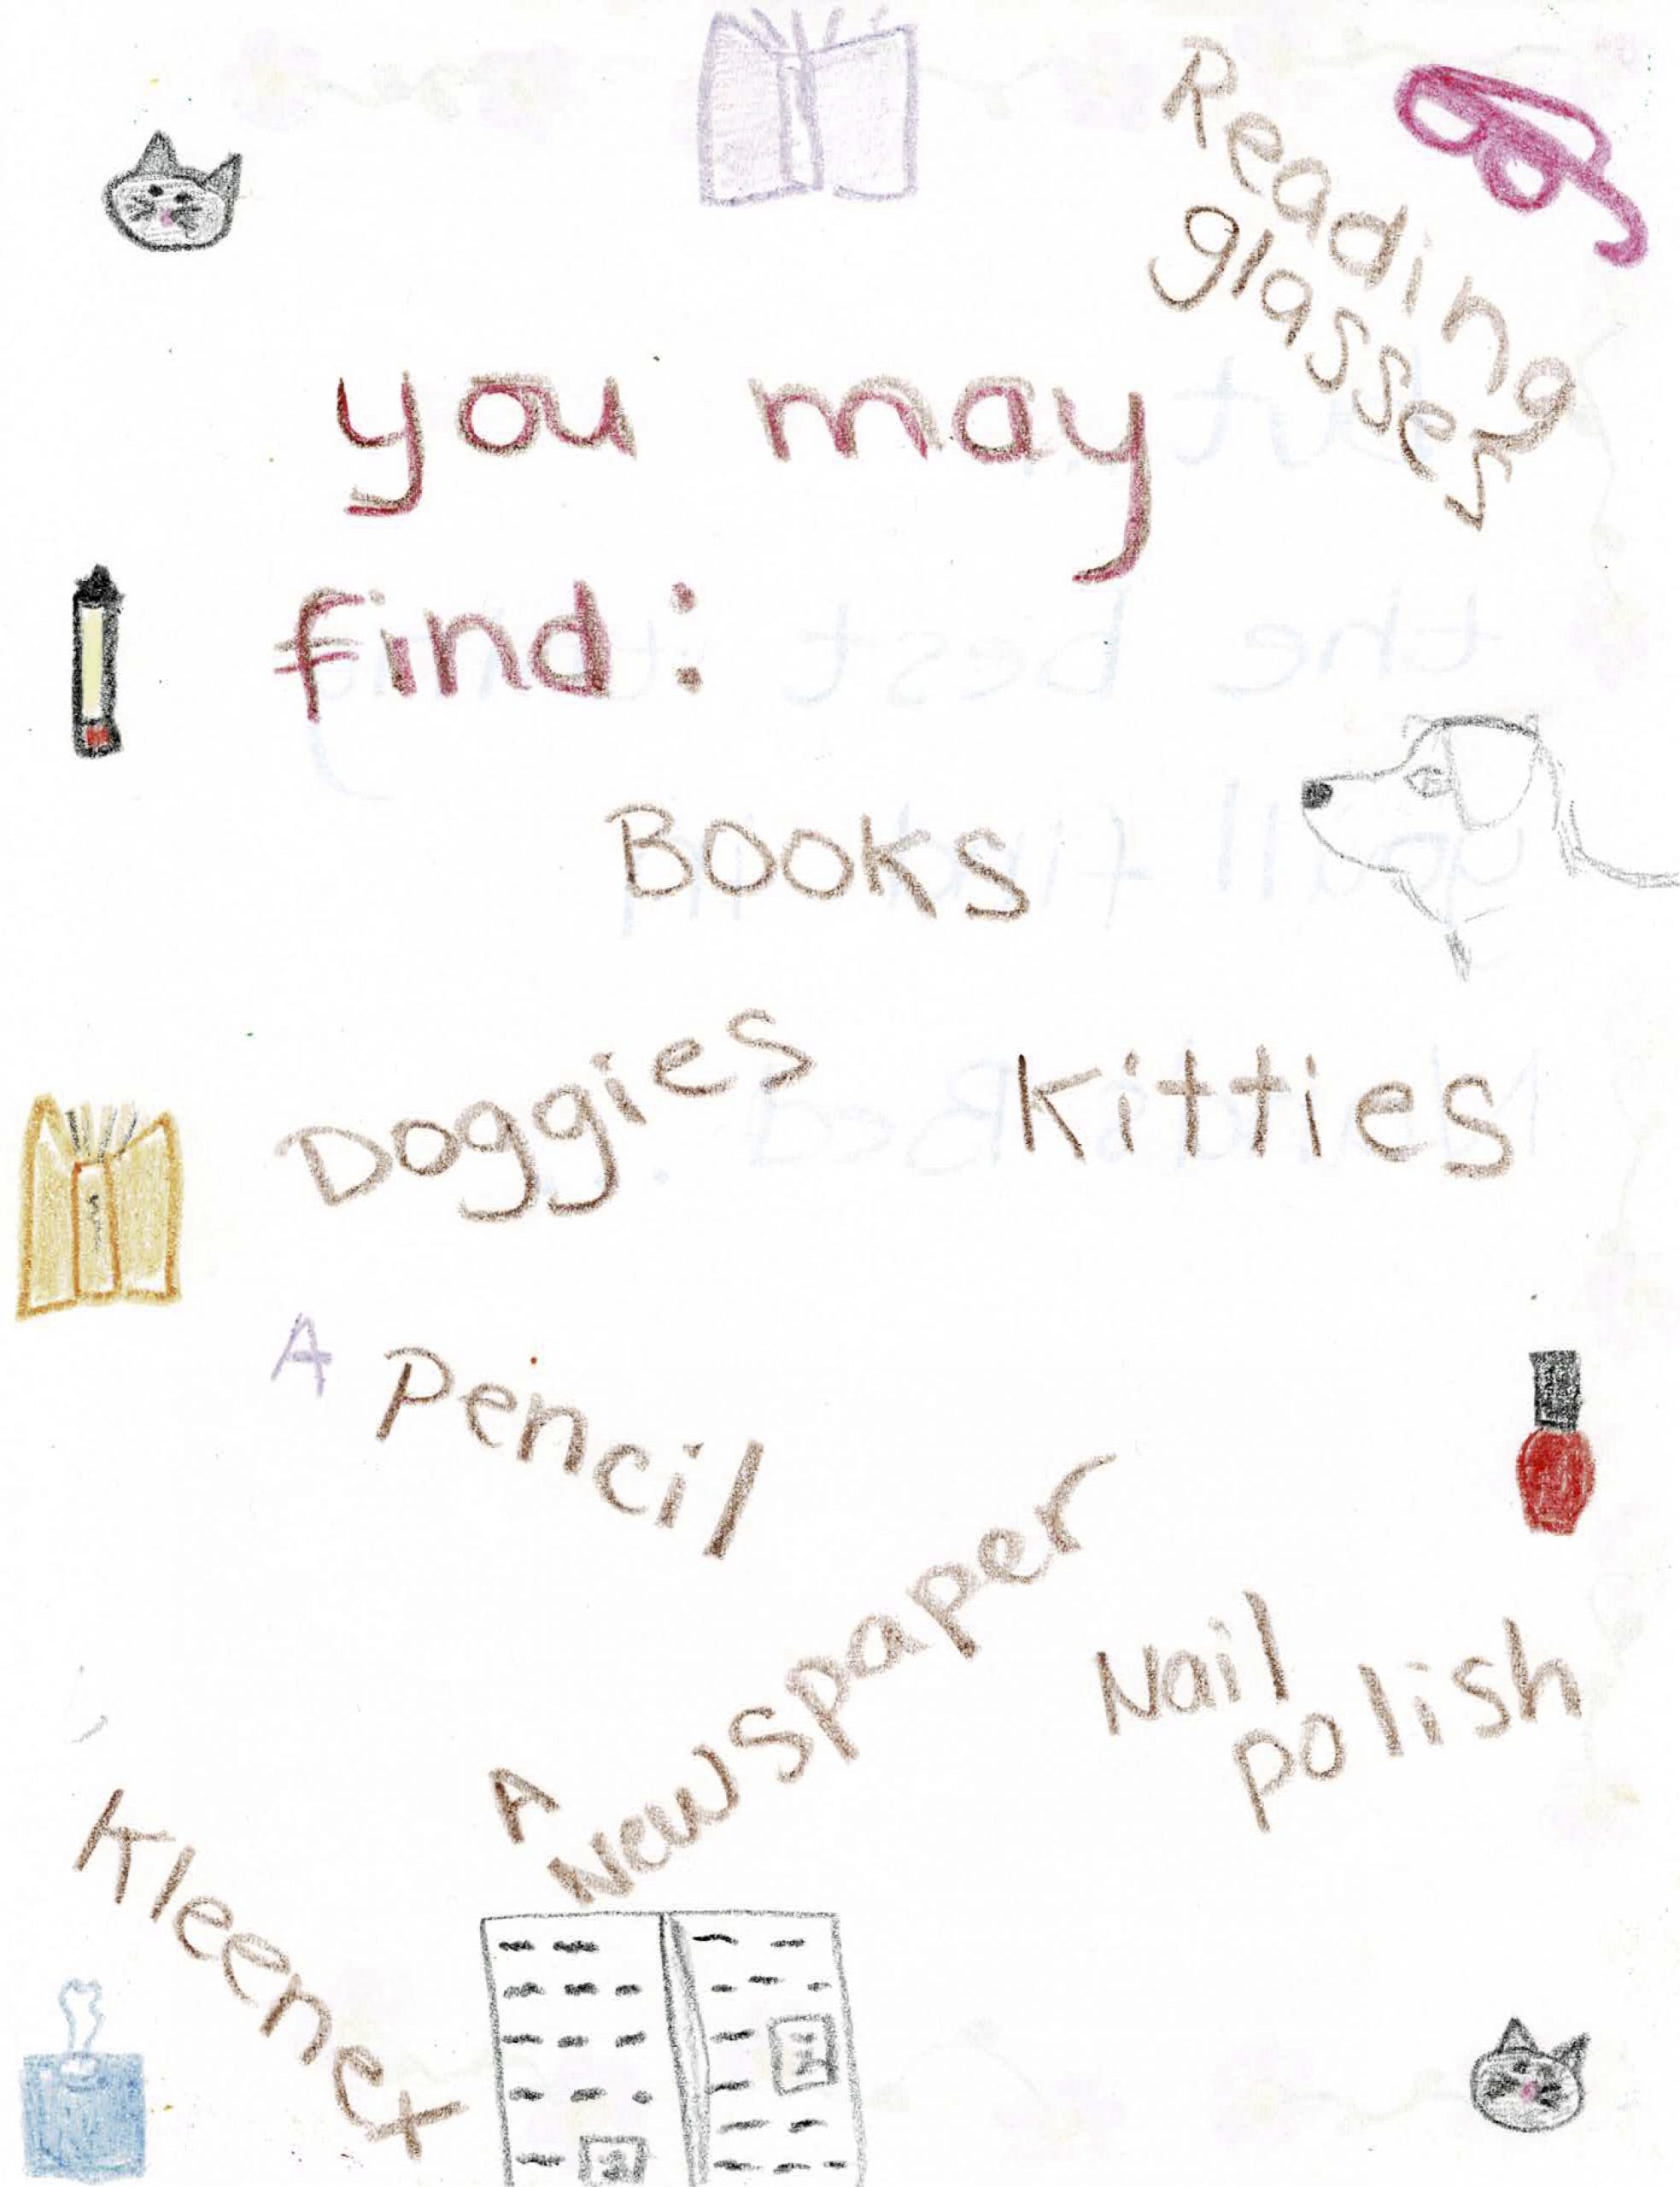 Reading
glasses
you may
find:
Books
Doggies
Kitties
A Pencil
A
Newspaper
Nail
polish
Kleenex